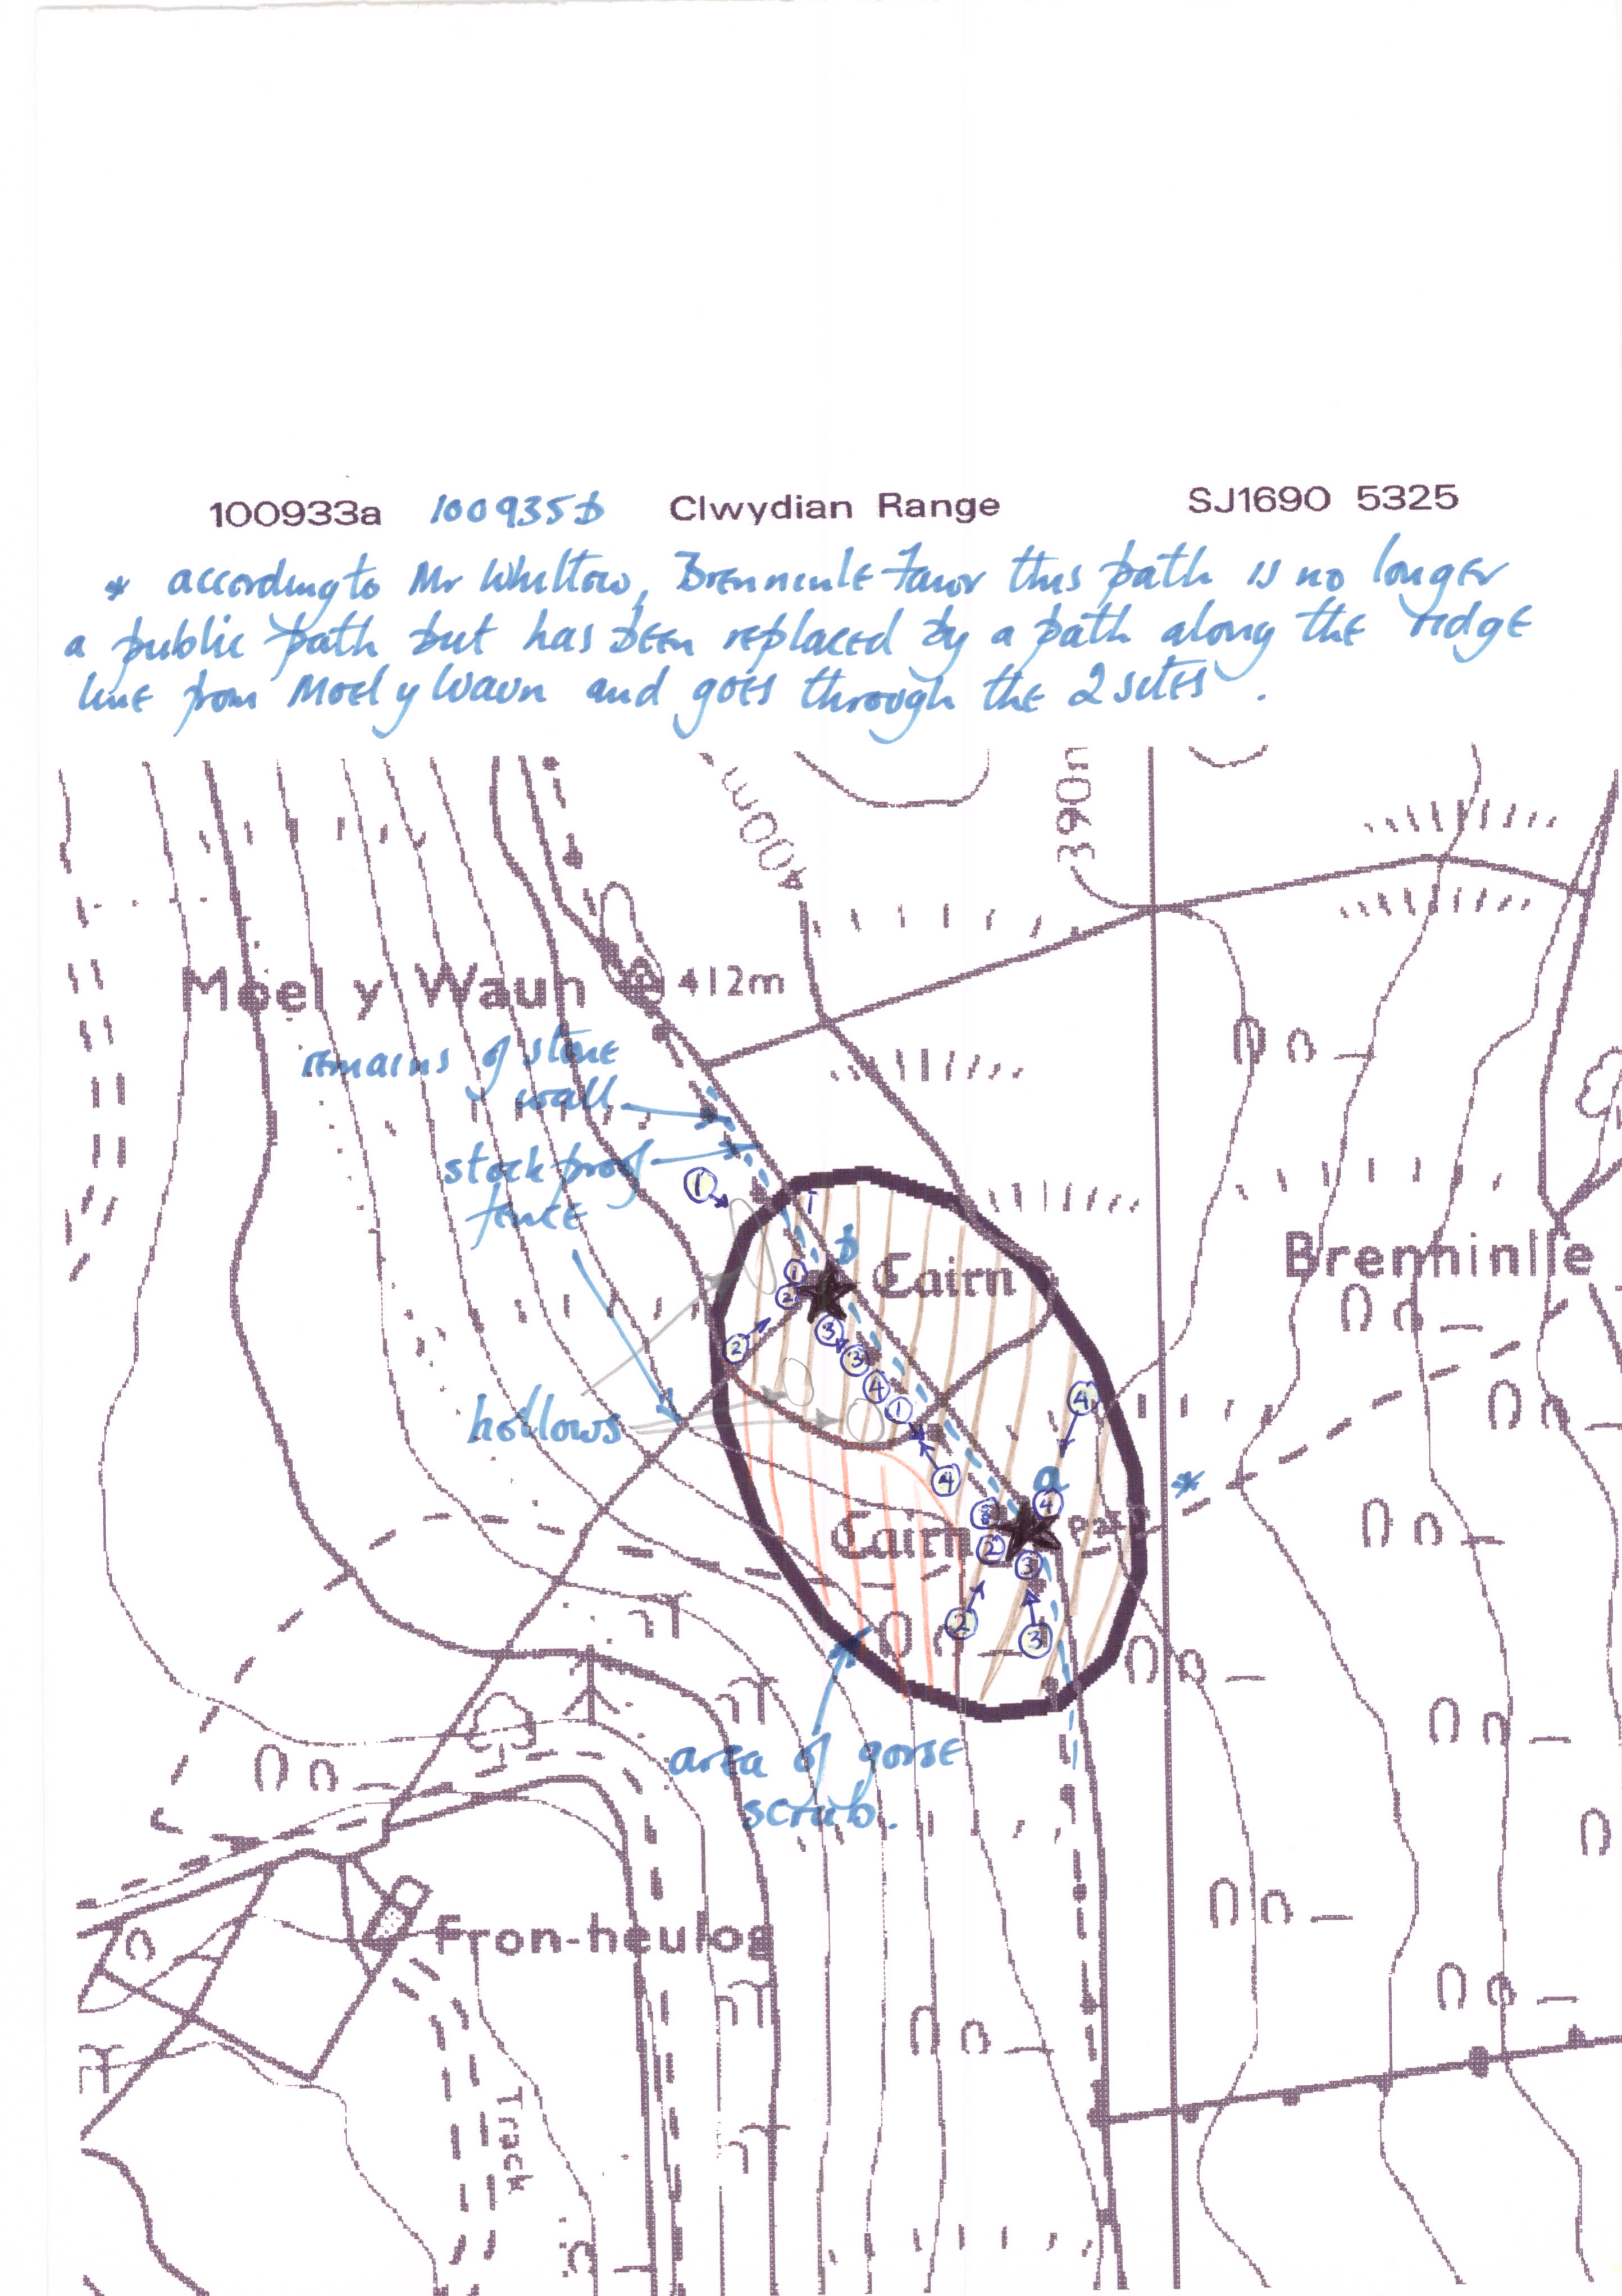 100933a 100935b Clwydian Range SJ1690 5325
* according to Mr Whittow, this path is no longer
a public path but has been replaced by a path along the ridge
line from Moel y Waun and goes through the 2 sites.
400m
390m
Moel y Waun
412m
remains of stone
wall
stock proof
fence
1
1
b
Cairn
1
2
2
3
3
4
1
4
4
hollows
a
*
4
Cairn
Path
2
3
2
3
Brenhinlle
area of gorse
scrub.
Fron-heulog
Track